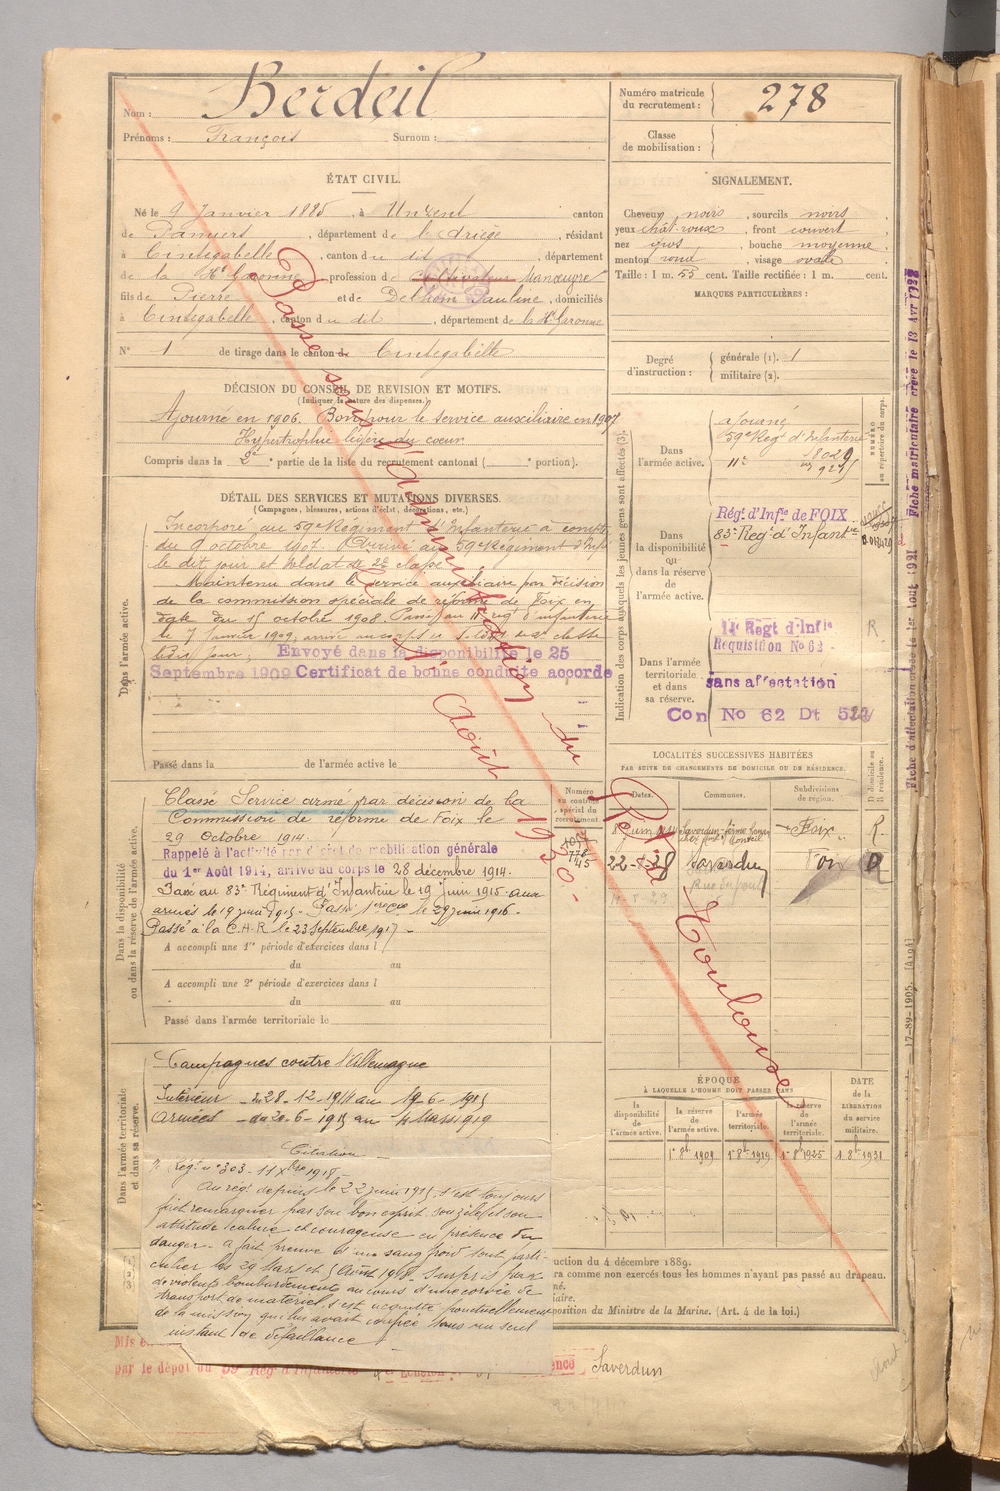 Nom : Berdeil
Prénoms : François Surnom :
Numéro matricule du recrutement : 278
Classe de mobilisation :
ÉTAT CIVIL.
Né le 9 Janvier 1885, à Unzent canton
de Pamiers, département de l'Ariège, résidant
à Cintegabelle, canton du dit, département
de la Hte Garonne, profession de cultivateur Manœuvre
fils de Pierre et de Delhom Pauline, domiciliés
à Cintegabelle, canton du dit, département de la Hte Garonne
N° 1 de tirage dans le canton de Cintegabelle
SIGNALEMENT.
Cheveux noirs, sourcils noirs,
yeux chât-roux, front couvert,
nez gros, bouche moyenne,
menton rond, visage ovale
Taille : 1 m. 53 cent. Taille rectifiée : 1 m. cent.
MARQUES PARTICULIÈRES :
Degré d'instruction : générale (1). 1
militaire (2).
DÉCISION DU CONSEIL DE REVISION ET MOTIFS.
(Indiquer la nature des dispenses.)
Ajourné en 1906. Bon pour le service auxiliaire en 1907
Hypertrophie légère du cœur
Compris dans la 2e partie de la liste du recrutement cantonal ( portion).
DÉTAIL DES SERVICES ET MUTATIONS DIVERSES.
(Campagnes, blessures, actions d'éclat, décorations, etc.)
Dans l'armée active.
Incorporé au 59e Régiment d'Infanterie à compter
du 9 octobre 1907. Arrivé au 59e Régiment d'Infie
le dit jour et soldat de 2e classe
Maintenu dans le service auxiliaire par décision
de la commission spéciale de réforme de Foix en
date du 15 octobre 1908. Passé au 11e régt d'infanterie
le 7 Janvier 1909, arrivé au corps et soldat de 2e classe
le dit jour ; Envoyé dans la disponibilité le 25
Septembre 1909 Certificat de bonne conduite accordé
Passé dans la de l'armée active le
Dans la disponibilité ou dans la réserve de l'armée active.
Classé Service armé par décision de la
Commission de réforme de Foix le
29 Octobre 1914.
Rappelé à l'activité par décret de mobilisation générale
du 1er Août 1914, arrivé au corps le 28 décembre 1914.
Passé au 83e Régiment d'Infanterie le 19 Juin 1915 aux
armées le 19 juin 1915. Passé 1ere Cie le 29 juin 1916.
Passé à la C.H.R. le 23 Septembre 1917
A accompli une 1re période d'exercices dans l
du au
A accompli une 2e période d'exercices dans l
du au
Passé dans l'armée territoriale le
Numéro au contrôle spécial du recrutement.
Dans l'armée territoriale et dans sa réserve.
Campagnes contre l'Allemagne
Intérieur du 28-12-1914 au 19-6-1915
Armées du 20-6-1915 au 14 Mars 1919
Citation
Régt n° 303. 11 Xbre 1918
Au régt depuis le 22 juin 1915, s'est toujours
fait remarquer par son bon esprit son zèle et son
attitude calme et courageuse en présence du
danger. A fait preuve d'un sang froid tout parti-
culier les 29 Mars et 5 Août 1918. Surpris par
de violents bombardements au cours d'une corvée de
transport de matériel, s'est acquitté ponctuellement
de la mission qui lui avait confiée sans un seul
instant de défaillance
Passé sous l'administration du Bureau Toulouse
Août 1920.
Indication des corps auxquels les jeunes gens sont affectés (3).
Dans l'armée active.
ajourné
59e Régt d'Infanterie
11e
NUMÉRO au répertoire du corps.
Dans la disponibilité ou dans la réserve de l'armée active.
Régt d'Infie de FOIX
83e Régt d'Infantrie
Dans l'armée territoriale et dans sa réserve.
14 Regt d'Infie R
Requisition No 62
sans affectation
Con No 62 Dt
LOCALITÉS SUCCESSIVES HABITÉES
PAR SUITE DE CHANGEMENTS DE DOMICILE OU DE RÉSIDENCE.
Dates. Communes. Subdivisions de région. D domicile ou R résidence.
Saverdun Foix R.
22-1-28 Saverdun Foix D
ÉPOQUE
À LAQUELLE L'HOMME DOIT PASSER DANS
la disponibilité de l'armée active.
la réserve de l'armée active.
l'armée territoriale.
la réserve de l'armée territoriale.
DATE de la LIBÉRATION du service militaire.
1r 8b 1909 1r 8b 1919 1r 8b 1925 1 8b 1931
uction du 4 décembre 1889.
ra comme non exercés tous les hommes n'ayant pas passé au drapeau.
né.
iaire.
position du Ministre de la Marine. (Art. 4 de la loi.)
par le dépôt du 59e Rég d'Infanterie Saverdun
Fiche matriculaire créée le 13 Avr 1922
Fiche d'affectation créée le 1er Aout 1921
17-89-1905.